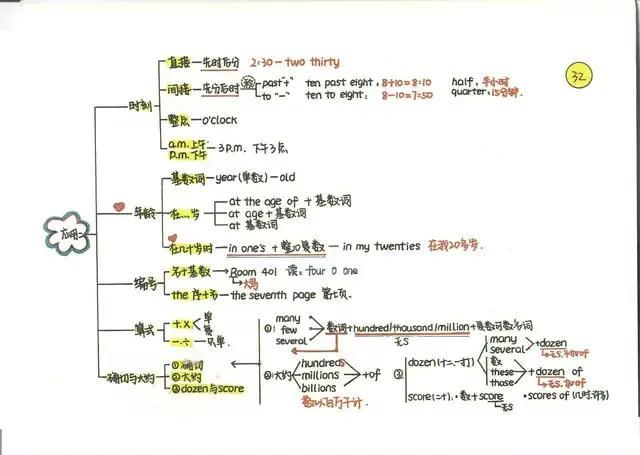 32
应用二
时刻
直接—先时后分 2:30—two thirty
间接—先分后时
past"+" ten past eight: 8+10=8:10 half: 半小时
to "—" ten to eight: 8-10=7:50 quarter: 15分钟.
整点—o'clock
a.m. 上午
p.m. 下午—3 P.m. 下午3点
年龄
基数词—year(单数)—old
在...岁
at the age of + 基数词
at age + 基数词
at 基数词
在几十岁时—in one's + 整10复数—in my twenties 在我20多岁.
编号
名+基数→Room 401 读: four 0 one
大写
the 序+名—the seventh page 第七页.
算式
+.×
单
复
一.÷—只.单
确切与大约
①确切
②大约
③dozen与score
①
many
few
several
数词+hundred/thousand/million+复数可数名词
无S
②大约
hundreds
millions
billions
+of
数以百万千计
③
dozen(十二,一打)
many
several
+dozen
无S.不加of
数
these
those
+dozen of
无S.加of
score(二十).数+score .scores of
无S